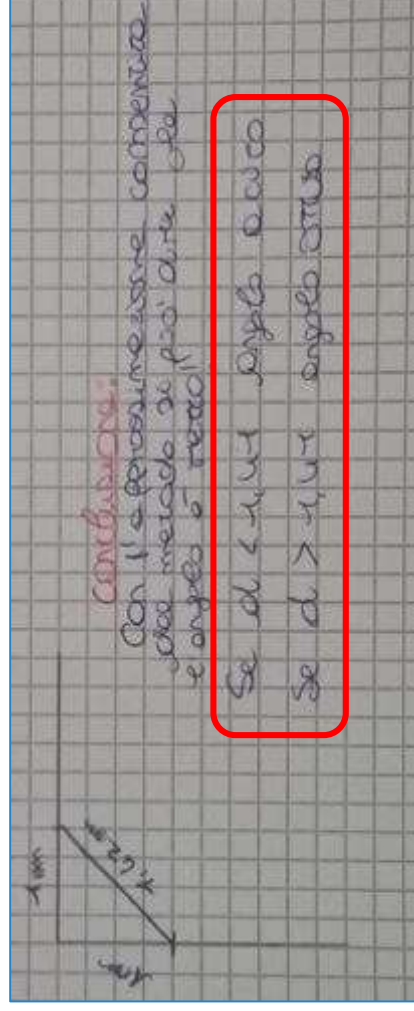 1 m
1 m
1,42 m
Conclusione:
Con l'approssimazione consentita
dal metodo si può dire se
l'angolo è retto!
Se d < 1,41 angolo acuto
Se d > 1,41 angolo ottuso